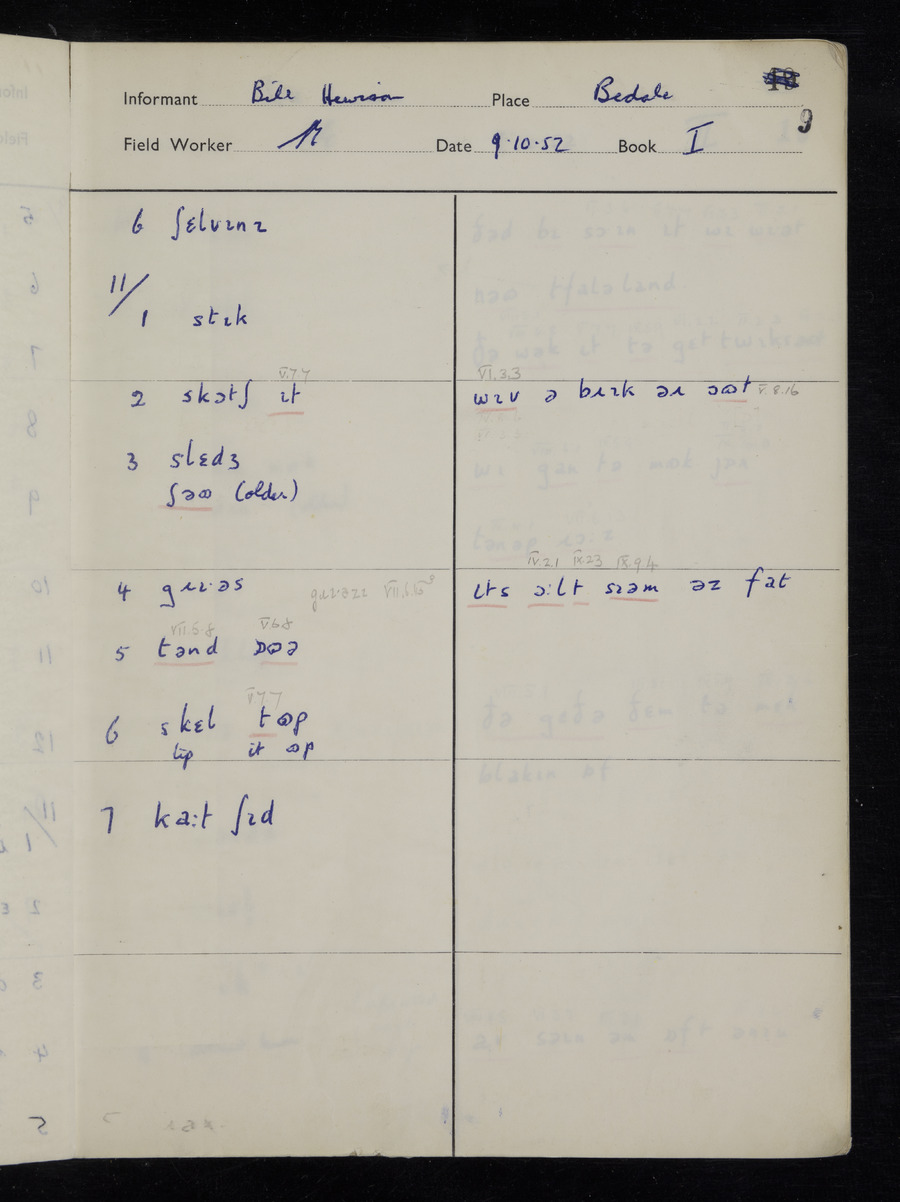 Informant Bill Hewison Place Bedale
9
Field Worker Date 9·10·52 Book I
6 ʃɛlvɪnz
11/
1 stɪk
V.7.7 VI.3.3
2 skɔtʃ ɪt wɪv ə bɹɪk əɹ ɔʊt V.8.16
3 slɛdʒ
ʃəʊ (older)
IV.2.1 IX.2.3 IX.9.4
4 gɪɪəs ɪts ɔ:lt sɪəm əz fat
VII.5.8 V.6.8
5 tənd ɒʊə
V.7.7
6 skɛl tʊp
tip it ʊp
7 ka:t ʃɛd